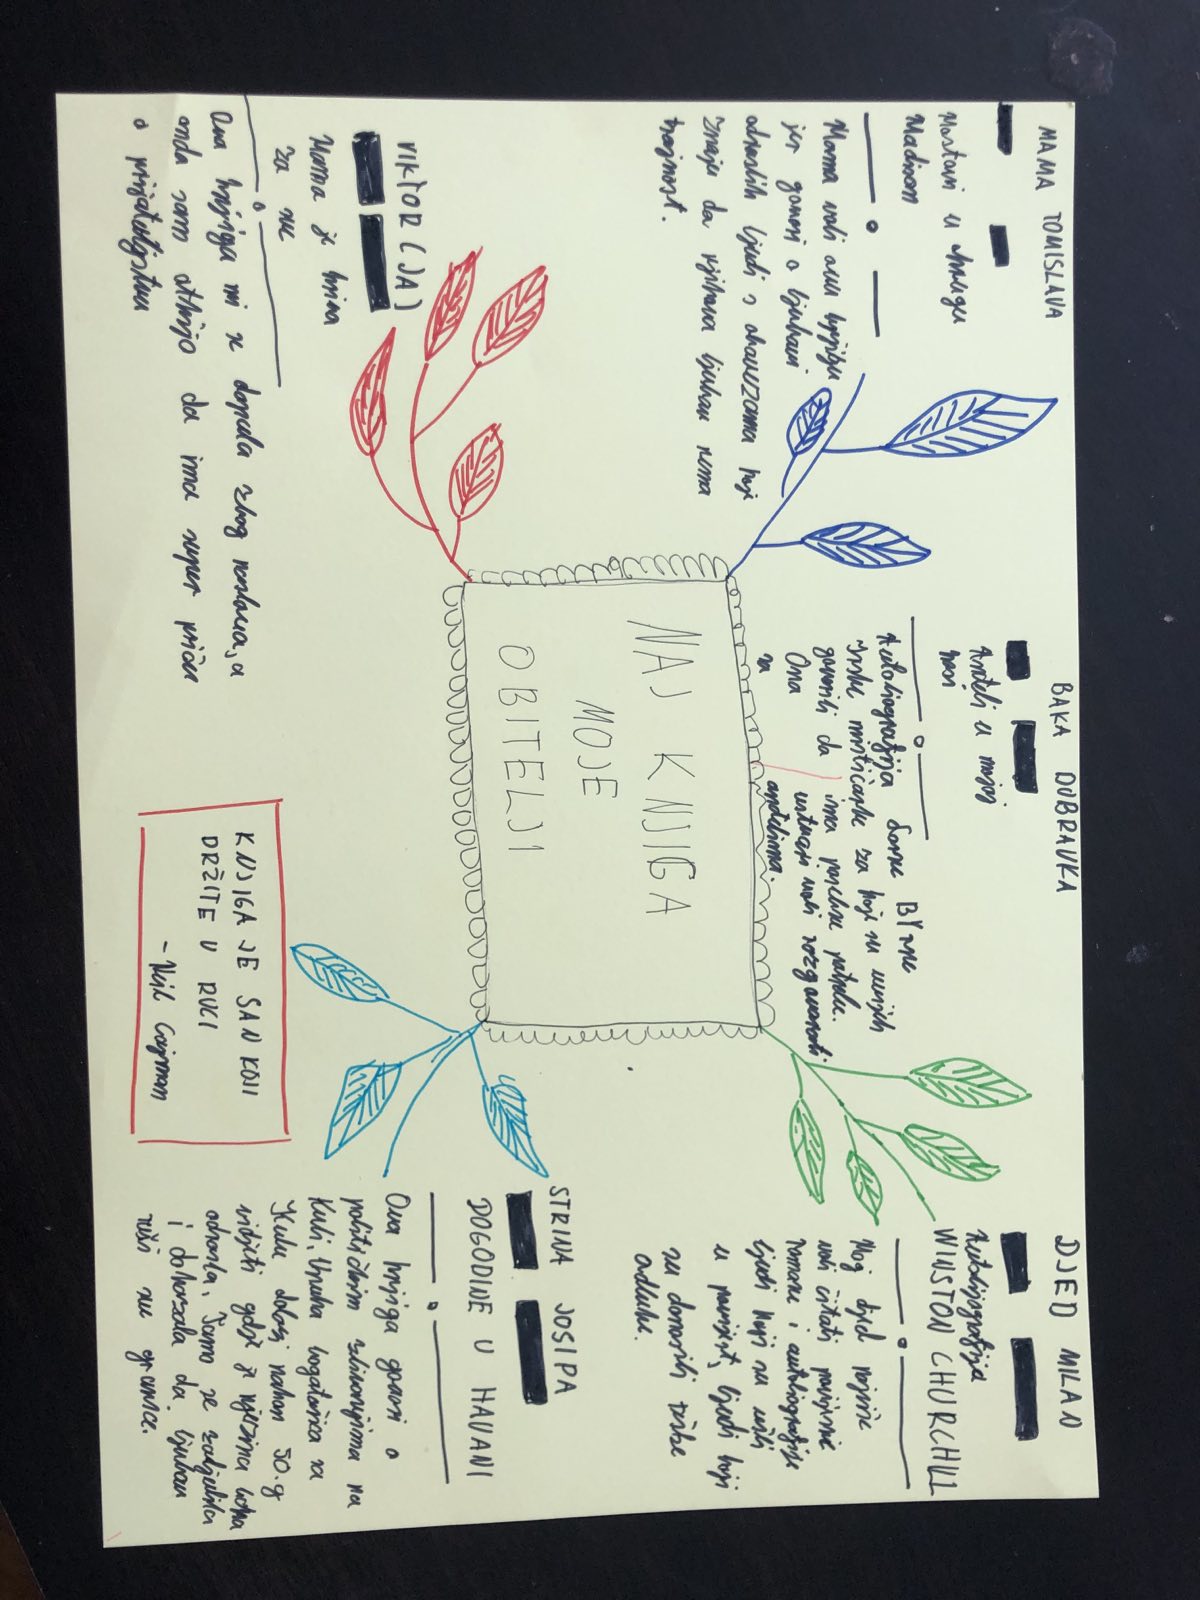 MAMA TOMISLAVA
Mostovi u okrugu
Madison
Mama voli ovu knjigu
jer govori o ljubavi
odraslih ljudi s obavezama koji
znaju da njihova ljubav nema
trajnost.
BAKA DUBRAVKA
Anđeli u mojoj
kosi
Autobiografija Lorne BYrne
irske mističarke za koju su uvijek
govorili da ima posebne potrebe.
Ona ustvari vodi razgovarati
sa anđelima.
DJED MILAN
Autobiografija
WINSTON CHURCHILL
Moj djed najviše
voli čitati povijesne
romane i autobiografije
ljudi koji su ušli
u povijest, ljudi koji
su donosili teške
odluke.
NAJ KNJIGA
MOJE
OBITELJI
VIKTOR (JA)
Mama je kriva
za sve
Ova knjiga mi se dopala zbog naslova, a
onda sam otkrio da ima super priču
o prijateljstvu
KNJIGA JE SAN KOJI
DRŽITE U RUCI
- Neil Gajman
STRINA JOSIPA
DOGODINE U HAVANI
Ova knjiga govori o
političkim zbivanjima na
Kubi. Unuka bogataša sa
Kube dolazi nakon 50.g
vidjeti gdje je njezina baka
odrasla. Tamo se zaljubila
i dokazala da ljubav
ruši sve granice.